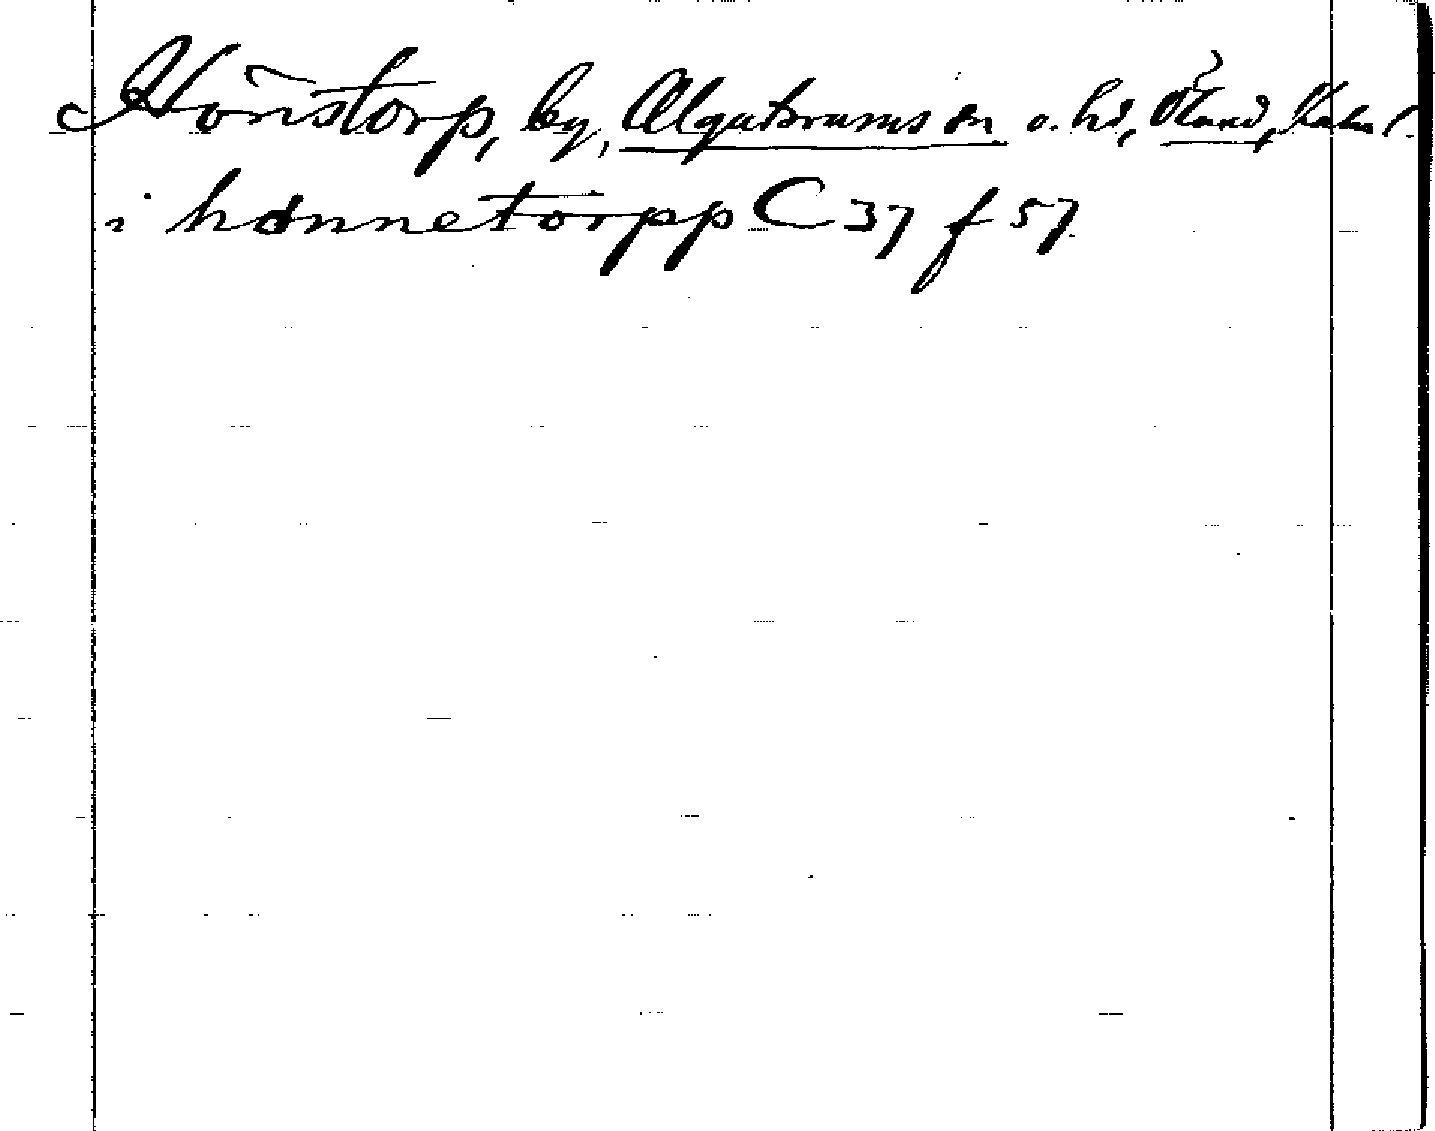 Hönstorp, by, Algutsrums sn o. hd, Öland, Kalm. l.
i hønnetorpp C 37 f 57